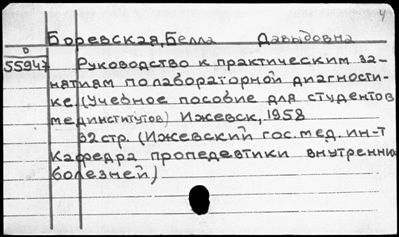 4
Боревская, Белла Давыдовна
D
55947 Руководство к практическим за-
нятиям по лабораторной диагности-
ке. (Учебное пособие для студентов
мединститутов) Ижевск, 1958
92 стр. (Ижевский гос. мед. ин-т
Кафедра пропедевтики внутренних
болезней)